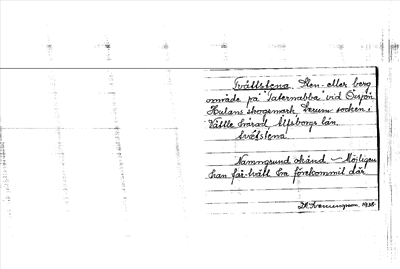 Tvättstena. Sten- eller berg
område på "Taternabba" vid Öxsjön
Hulans skogsmark Lerum socken,
Vättle härad, Älfsborgs län.
Namngrund okänd. – Möjligen
kan får-tvätt ha förekommit där
1938.